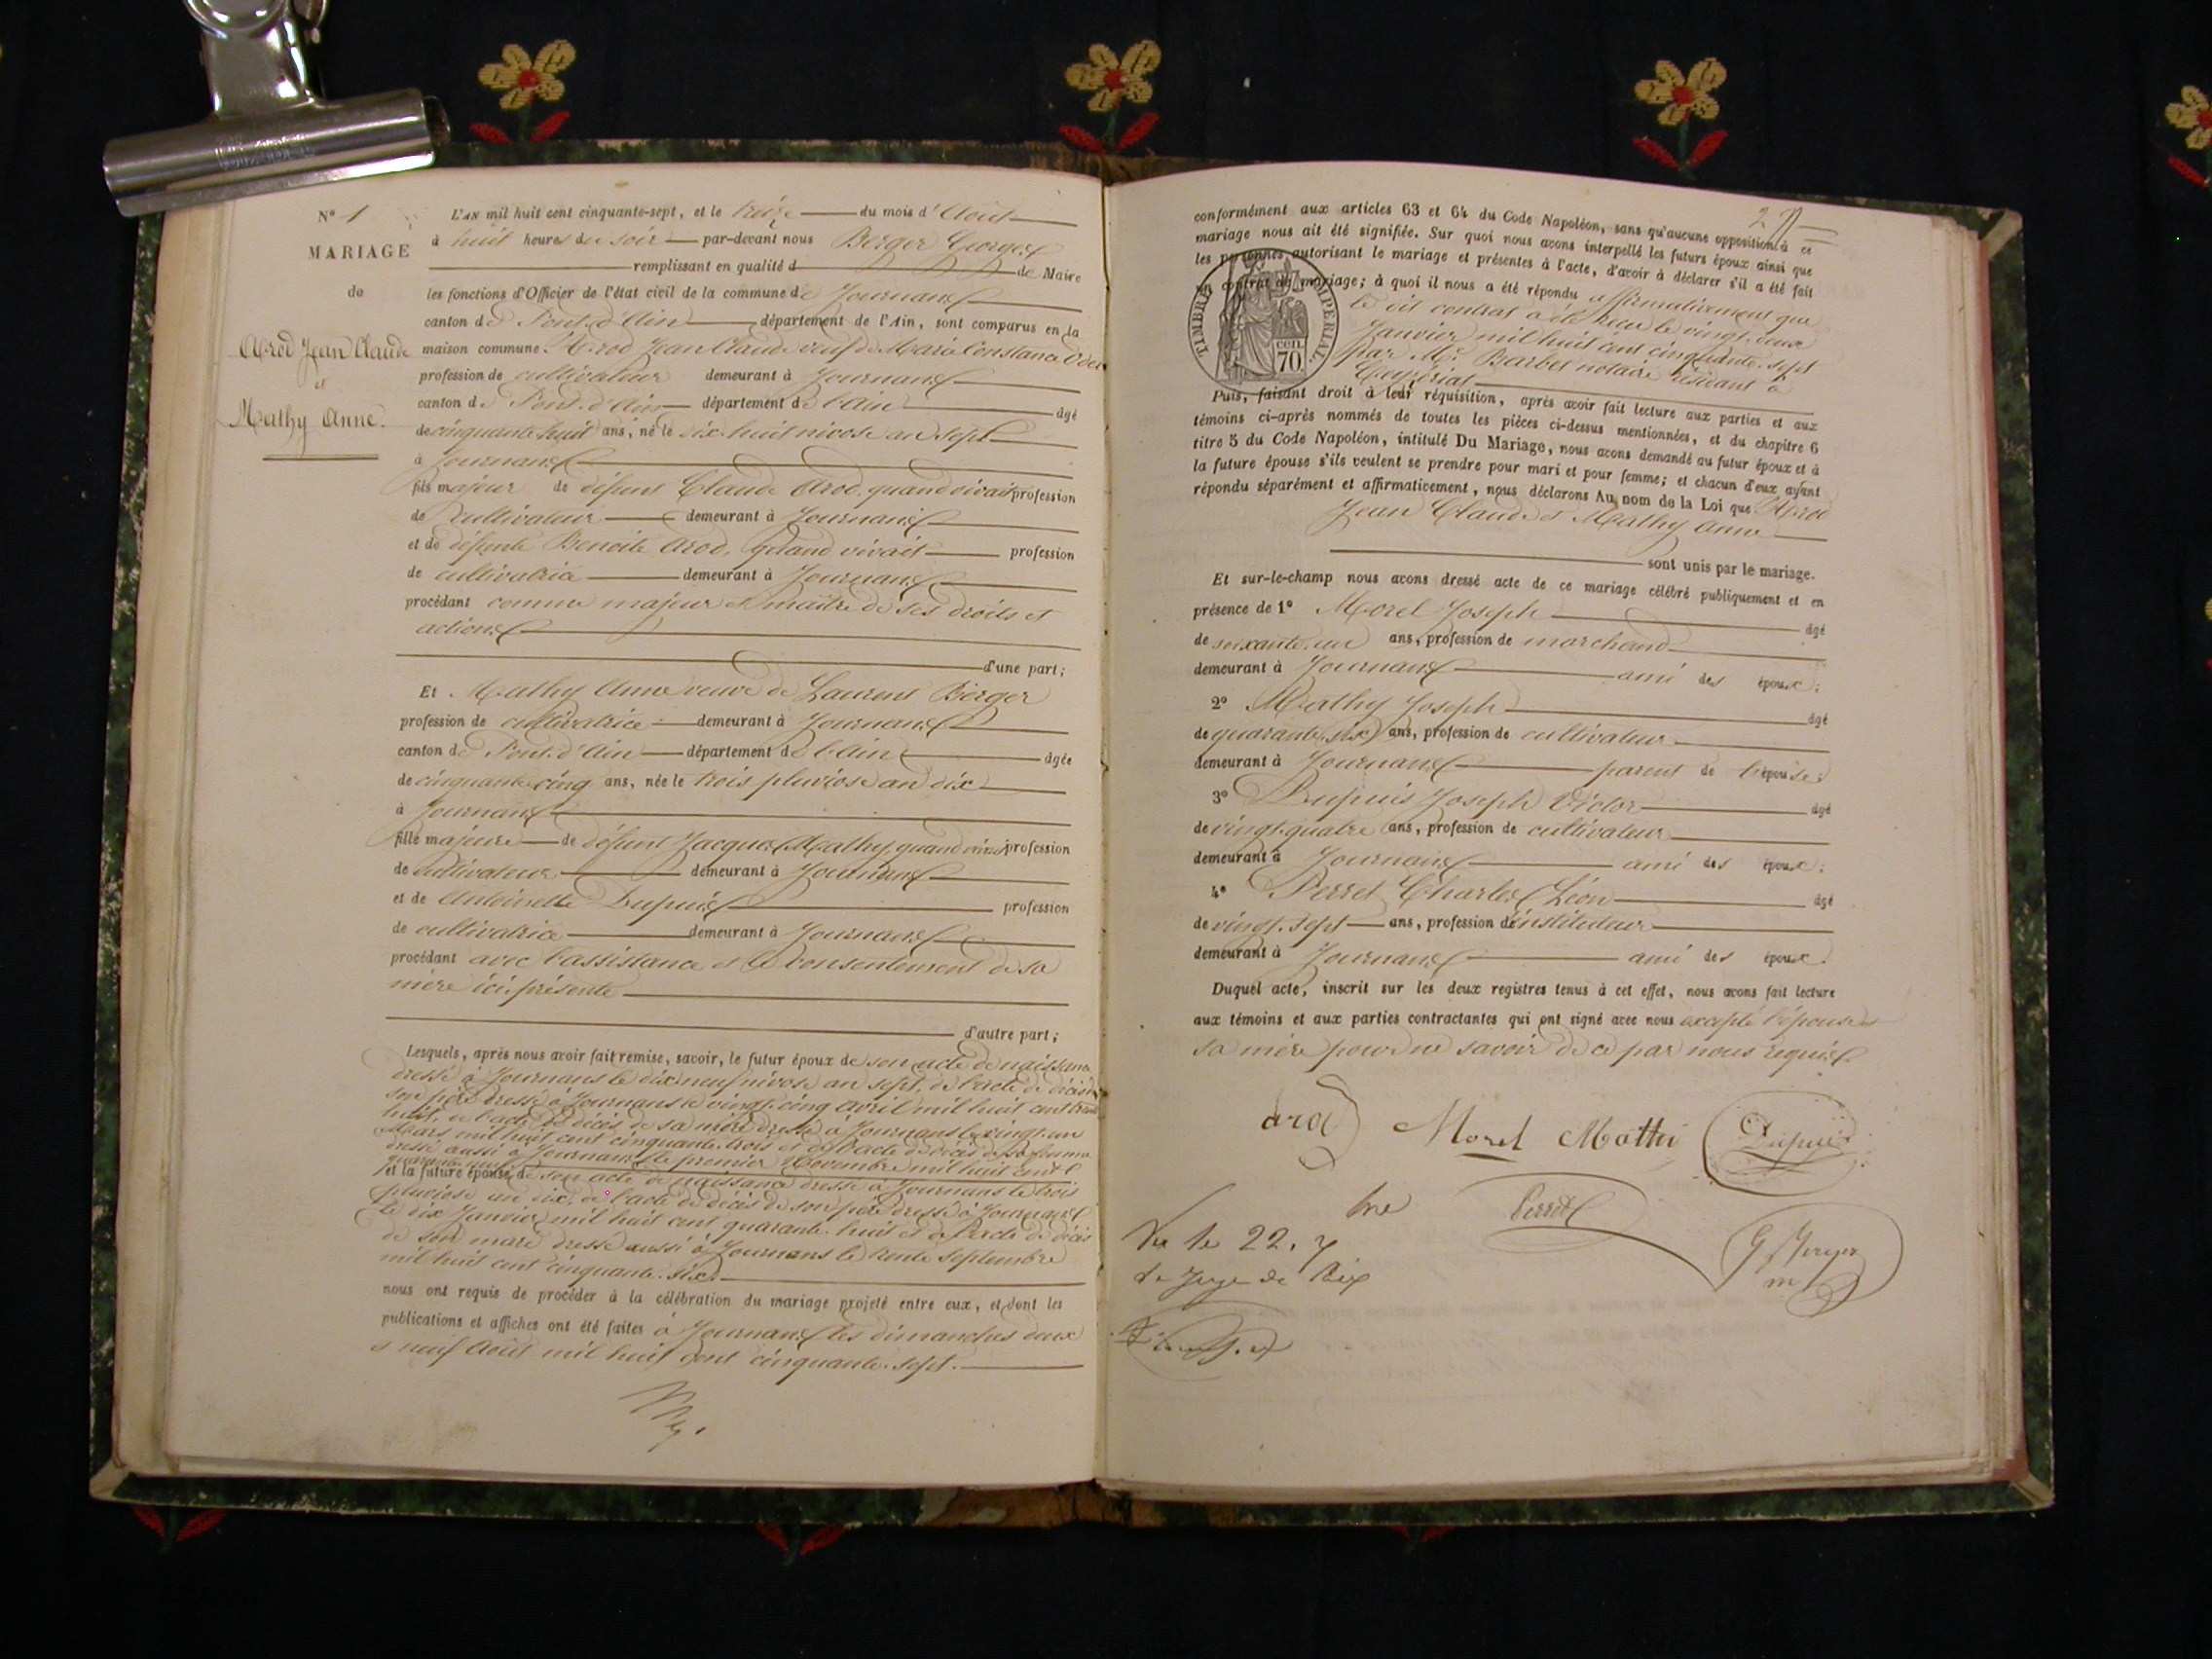 N° 1
MARIAGE
de
Arod Jean Claude
et
Mathy Anne.
L'AN mil huit cent cinquante-sept, et le treize du mois d'Août
à huit heures du soir par-devant nous Berger Georges
remplissant en qualité de Maire
les fonctions d'Officier de l'état civil de la commune de Journans
canton de Pont-d'Ain département de l'Ain, sont comparus en la
maison commune. Arod Jean Claude veuf de Maria Constance
profession de cultivateur demeurant à Journans
canton de Pont-d'Ain département de l'Ain âgé
de cinquante huit ans, né le dix-huit nivose an sept
à Journans
fils majeur de défunt Claude Arod, quand vivait profession
de cultivateur demeurant à Journans
et de défunte Benoite Arod, quand vivait profession
de cultivatrice demeurant à Journans
procédant comme majeur et maître de ses droits et
actions
d'une part;
Et Mathy Anne veuve de Laurent Berger
profession de cultivatrice demeurant à Journans
canton de Pont-d'Ain département de l'Ain âgée
de cinquante cinq ans, née le trois pluviose an dix
à Journans
fille majeure de défunt Jacques Mathy, quand vivait profession
de cultivateur demeurant à Journans
et de Antoinette Dupuis profession
de cultivatrice demeurant à Journans
procédant avec l'assistance et le consentement de sa
mère ici présente
d'autre part;
Lesquels, après nous avoir fait remise, savoir, le futur époux de son acte de naissance
dressé à Journans le dix neuf nivose an sept, de l'acte de décès de
son père dressé à Journans le vingt-cinq avril mil huit cent trente
huit, de l'acte de décès de sa mère dressé à Journans le vingt-un
Mars mil huit cent cinquante-trois et de l'acte de décès de sa femme
dressé aussi à Journans le premier Novembre mil huit cent
quarante
et la future épouse de son acte de naissance dressé à Journans le trois
pluviose an dix, de l'acte de décès de son père dressé à Journans
le dix Janvier mil huit cent quarante-huit et de l'acte de décès
de son mari dressé aussi à Journans le trente septembre
mil huit cent cinquante-six.
nous ont requis de procéder à la célébration du mariage projeté entre eux, et dont les
publications et affiches ont été faites à Journans les dimanches deux
et neuf Août mil huit cent cinquante-sept.
2
conformément aux articles 63 et 64 du Code Napoléon, sans qu'aucune opposition à ce
mariage nous ait été signifiée. Sur quoi nous avons interpellé les futurs époux ainsi que
les personnes autorisant le mariage et présentes à l'acte, d'avoir à déclarer s'il a été fait
un contrat de mariage; à quoi il nous a été répondu affirmativement que
le dit contrat a été reçu le vingt-deux
Janvier mil huit cent cinquante-sept
par Me Barbet notaire résidant à
Ceyzériat
TIMBRE IMPERIAL
70 cen.
Puis, faisant droit à leur réquisition, après avoir fait lecture aux parties et aux
témoins ci-après nommés de toutes les pièces ci-dessus mentionnées, et du chapitre 6
titre 5 du Code Napoléon, intitulé Du Mariage, nous avons demandé au futur époux et à
la future épouse s'ils veulent se prendre pour mari et pour femme; et chacun d'eux ayant
répondu séparément et affirmativement, nous déclarons Au nom de la Loi que Arod
Jean Claude et Mathy Anne
sont unis par le mariage.
Et sur-le-champ nous avons dressé acte de ce mariage célébré publiquement et en
présence de 1° Morel Joseph âgé
de soixante-un ans, profession de marchand
demeurant à Journans ami des époux.
2° Mathy Joseph âgé
de quarante-six ans, profession de cultivateur
demeurant à Journans parent de l'épouse.
3° Dupuis Joseph Victor âgé
de vingt-quatre ans, profession de cultivateur
demeurant à Journans ami des époux.
4° Perret Charles Léon âgé
de vingt-sept ans, profession d'instituteur
demeurant à Journans ami des époux.
Duquel acte, inscrit sur les deux registres tenus à cet effet, nous avons fait lecture
aux témoins et aux parties contractantes qui ont signé avec nous excepté l'épouse et
sa mère pour ne savoir de ce par nous requis
arod Morel Mattei Dupuis
Perret
G. Berger
Vu le 22. 7
le Juge de Paix